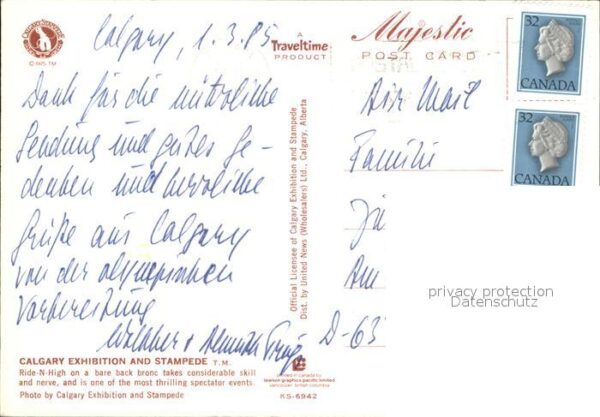 CALGARY STAMPEDE
© INS·TM
Calgary, 1.3.85
Dank für die nützliche
Sendung und gutes Ge-
denken und herzliche
Grüße aus Calgary
von der olympischen
Vorbereitung
CALGARY EXHIBITION AND STAMPEDE T.M.
Ride-N-High on a bare back bronc takes considerable skill
and nerve, and is one of the most thrilling spectator events.
Photo by Calgary Exhibition and Stampede
A
Traveltime
PRODUCT
Official Licensee of Calgary Exhibition and Stampede
Dist. by United News (Wholesalers) Ltd., Calgary, Alberta
printed in canada by
lawson graphics pacific limited
vancouver british columbia
KS-6942
Majestic
POST CARD
32
CANADA
32
CANADA
Air Mail
Familie
Am
D-63
privacy protection
Datenschutz